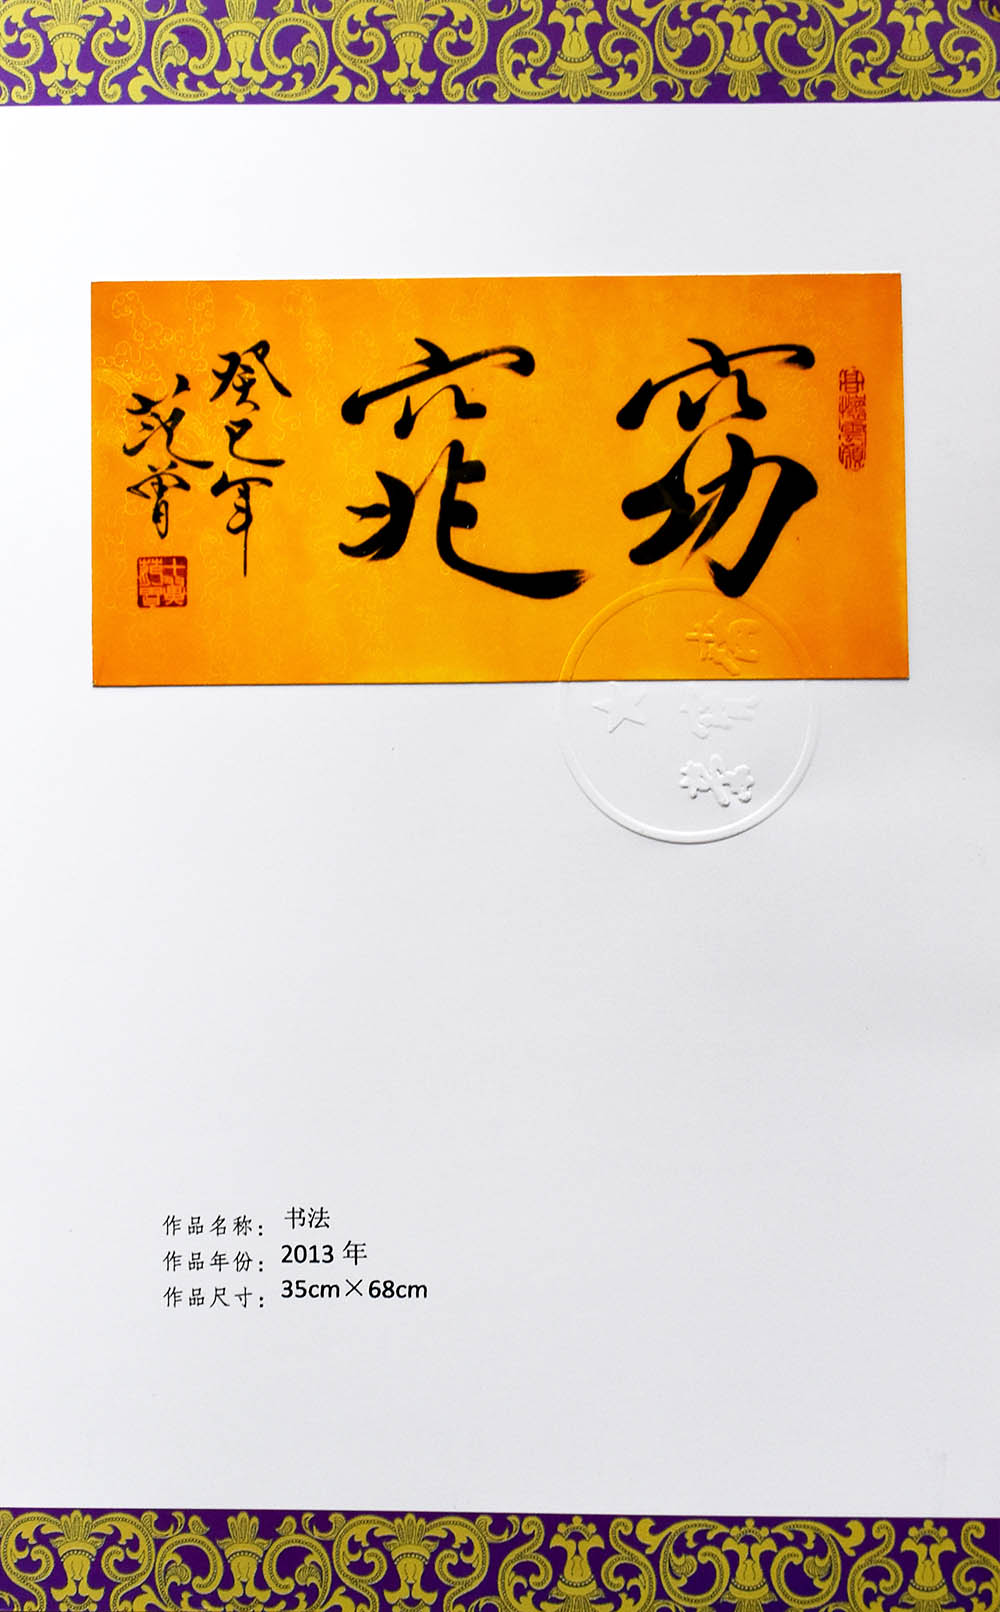 窈窕
癸巳年
范曾
作品名称： 书法
作品年份： 2013 年
作品尺寸： 35cm×68cm